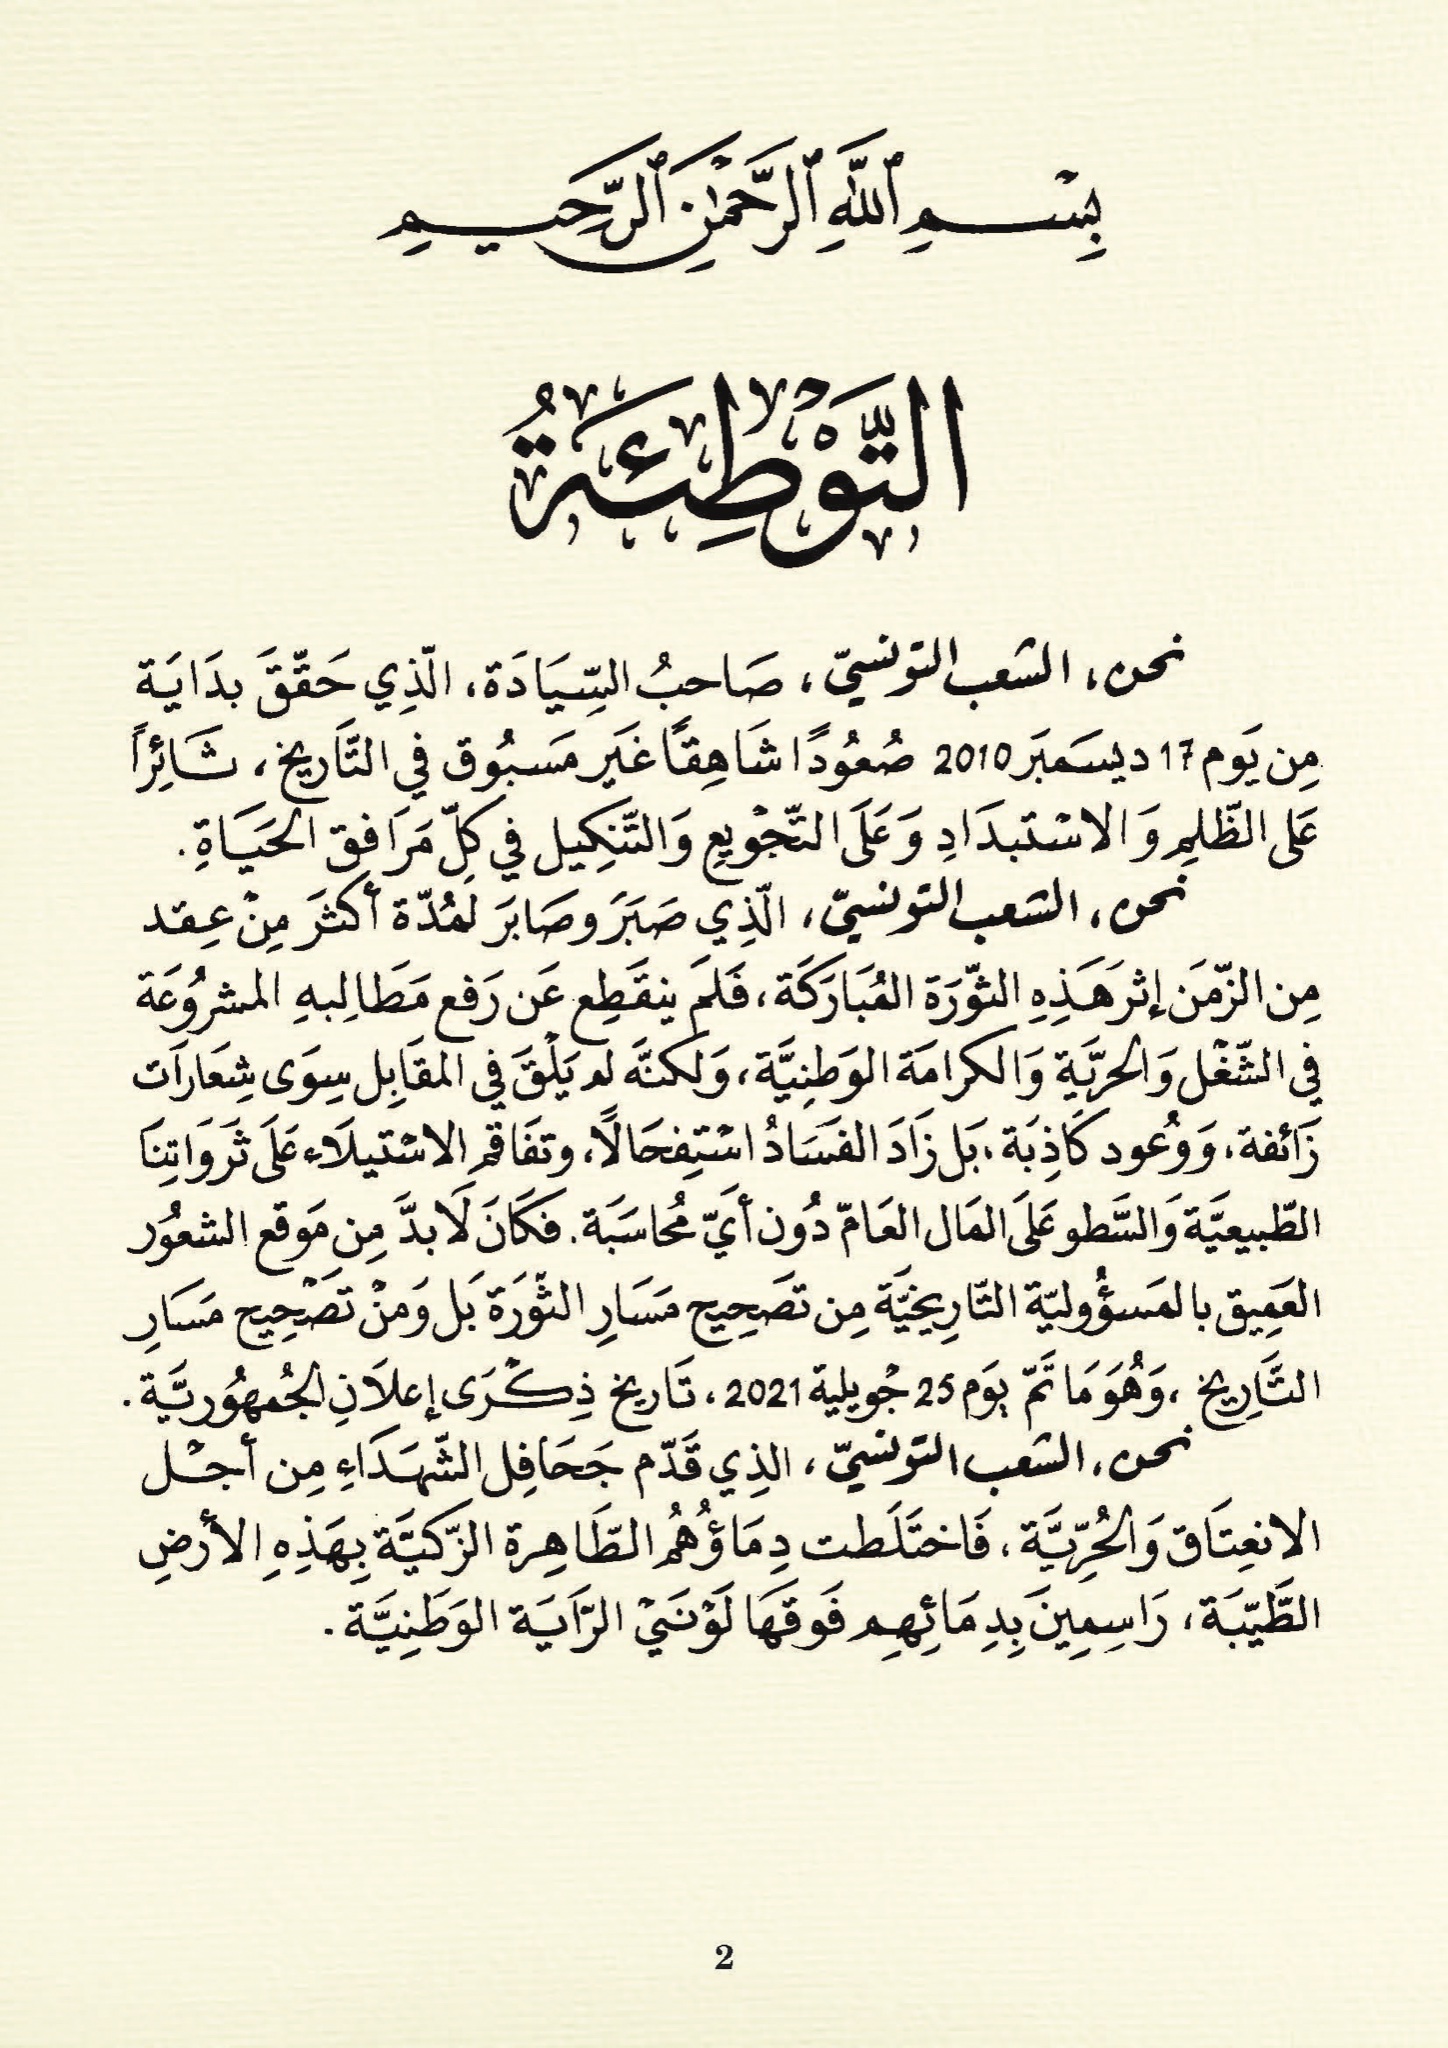 بِسْمِ ٱللَّهِ ٱلرَّحْمَٰنِ ٱلرَّحِيمِ
التَّوْطِئَةُ
نحن، الشعب التونسيّ، صَاحبُ السِّيَادَة، الّذِي حَقّقَ بدَايَة
مِن يَوم 17 ديسَمبَر 2010 صُعُودًا شَاهِقًا غَير مَسبُوق في التَّاريخ، ثَائِرًا
عَلى الظّلمِ وَالاسْتبدَادِ وَعَلَى التّجْويعِ وَالتَّنكِيل في كلِّ مَرَافق الحَيَاةِ.
نحن، الشعب التونسيّ، الّذِي صَبَرَ وصَابرَ لمُدّة أكثَر مِنْ عِقد
مِن الزّمَن إثر هَذِهِ الثّورَة المُبَارَكَة، فَلَم ينقَطِع عَن رَفع مَطَالِبهِ المشرُوعَة
في الشّغْل وَالحريَّة وَالكرامَة الوَطنِيَّة، وَلكنّه لم يَلْقَ في المقَابِل سِوَى شِعَارَات
زَائفة، وَوُعود كَاذِبَة، بَل زَادَ الفَسَادُ اسْتِفحَالًا، وتفَاقم الاسْتيلَاء عَلَى ثَرَوَاتِنَا
الطّبيعيَّة وَالسَّطو عَلَى المَال العَامّ دُون أيّ مُحاسَبَة. فكَانَ لَا بدَّ مِن مَوقع الشعُور
العَمِيق بالمَسؤُوليّة التّارِيخيَّة مِن تصَحِيح مَسَارِ الثّورَة بَل وَمنْ تصَحْيح مَسَارِ
التَّارِيخ، وَهُوَ مَا تَمّ يوَم 25 جْويلية 2021، تَاريخ ذِكْرَى إعلاَنِ الجُمهُوريَّة.
نحن، الشعب التونسيّ، الذِي قَدّم جَحَافِل الشّهَدَاءِ مِن أجْل
الانعِتَاق وَالحُرِّيَّة، فَاختَلَطت دِمَاؤُهُمُ الطَّاهِرة الزّكيَّة بِهَذِهِ الأرضِ
الطَّيّبَة، رَاسِمِينَ بِدِمَائِهِم فَوقَهَا لَوْنَيْ الرّايَة الوَطَنِيَّة.
2